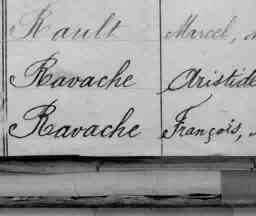 Rault Marcel,
Ravache Aristide
Ravache François,